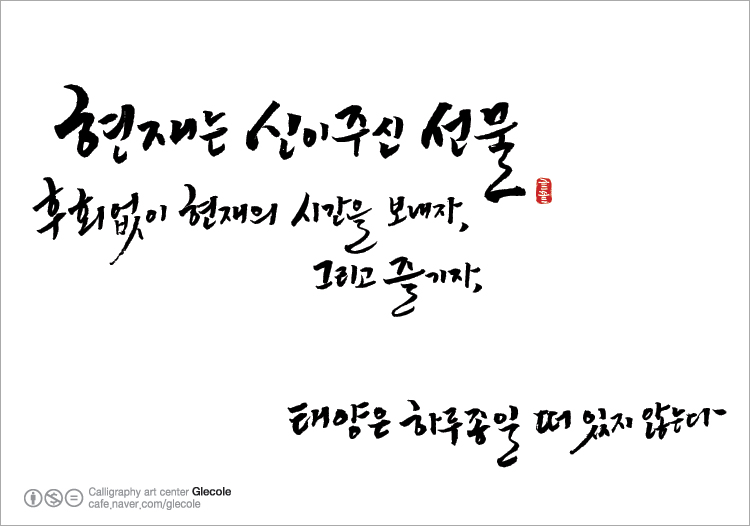 현재는 신이주신 선물
후회없이 현재의 시간을 보내자,
그리고 즐기자,
태양은 하루종일 떠 있지 않는다
Calligraphy art center Glecole
cafe.naver.com/glecole